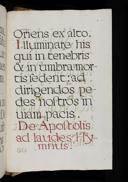 Oriens ex alto.
Illuminare his
qui in tenebris
& in umbra mor-
tis sedent: ad
dirigendos pe-
des nostros in
viam pacis.
De Apostolis
ad laudes. Hy
mnus.